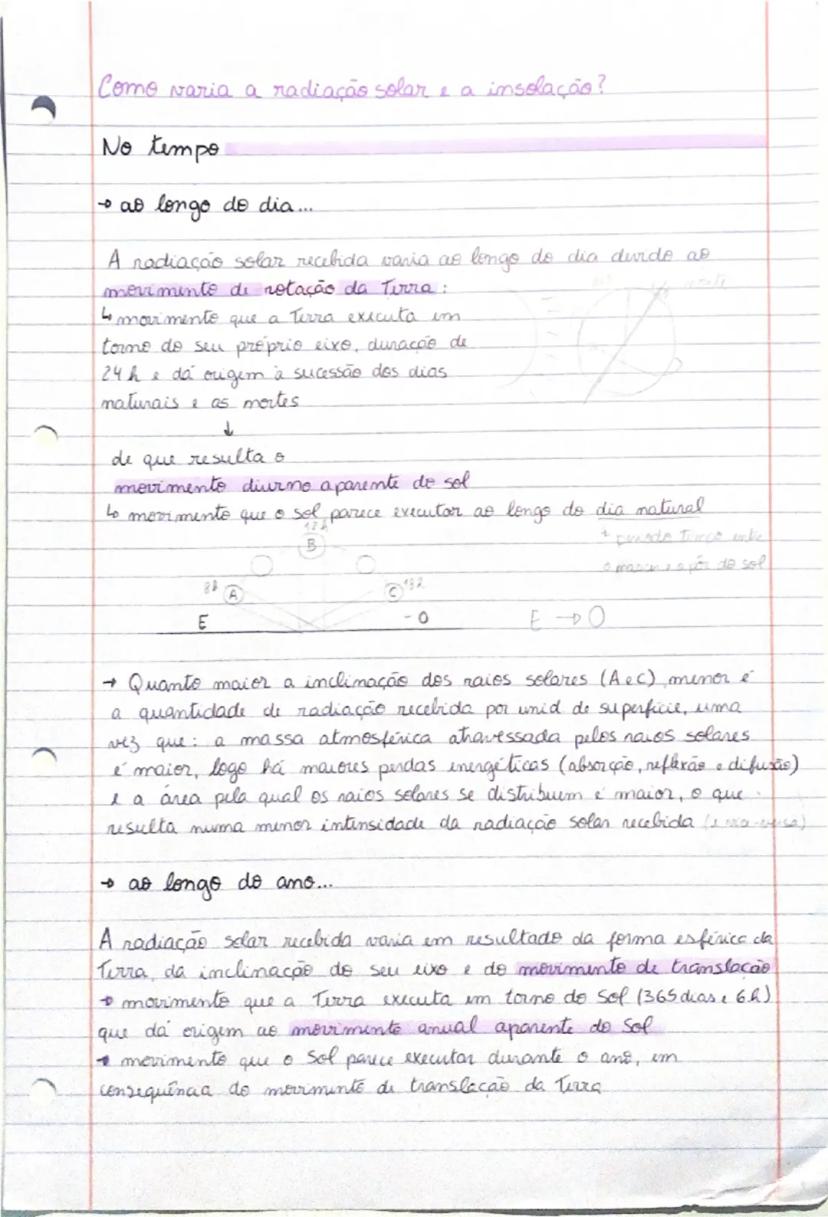 Como varia a radiação solar e a insolação?
No tempo
→ ao longo do dia...
A radiação solar recebida varia ao longo do dia devido ao
movimento de rotação da Terra:
↳ movimento que a Terra executa em
torno do seu próprio eixo, duração de
24 h e dá origem à sucessão dos dias
naturais e as noites
↓
de que resulta o
movimento diurno aparente do sol
↳ movimento que o sol parece executar ao longo do dia natural
12h
B
o nascer e o pôr do sol
8h A
C 18h
E - O
E → O
→ Quanto maior a inclinação dos raios solares (A e C), menor é
a quantidade de radiação recebida por unid de superfície, uma
vez que: a massa atmosférica atravessada pelos raios solares
é maior, logo há maiores perdas energéticas (absorção, reflexão e difusão)
e a área pela qual os raios solares se distribuem é maior, o que
resulta numa menor intensidade da radiação solar recebida (e vice-versa)
→ ao longo do ano...
A radiação solar recebida varia em resultado da forma esférica da
Terra, da inclinação do seu eixo e do movimento de translação
→ movimento que a Terra executa em torno do Sol (365 dias e 6h)
que dá origem ao movimento anual aparente do Sol
→ movimento que o Sol parece executar durante o ano, em
consequência do movimento de translação da Terra